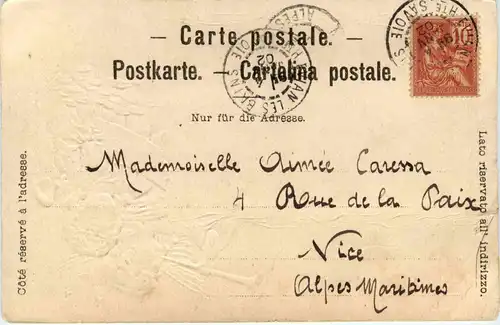 — Carte postale. —
Postkarte. — Cartolina postale.
Nur für die Adresse.
Côté réservé à l'adresse.
Lato riservato all' indirizzo.
Mademoiselle Aimée Caressa
4 Rue de la Paix
Nice
Alpes Maritimes
10
HTE SAVOIE
LES BAINS